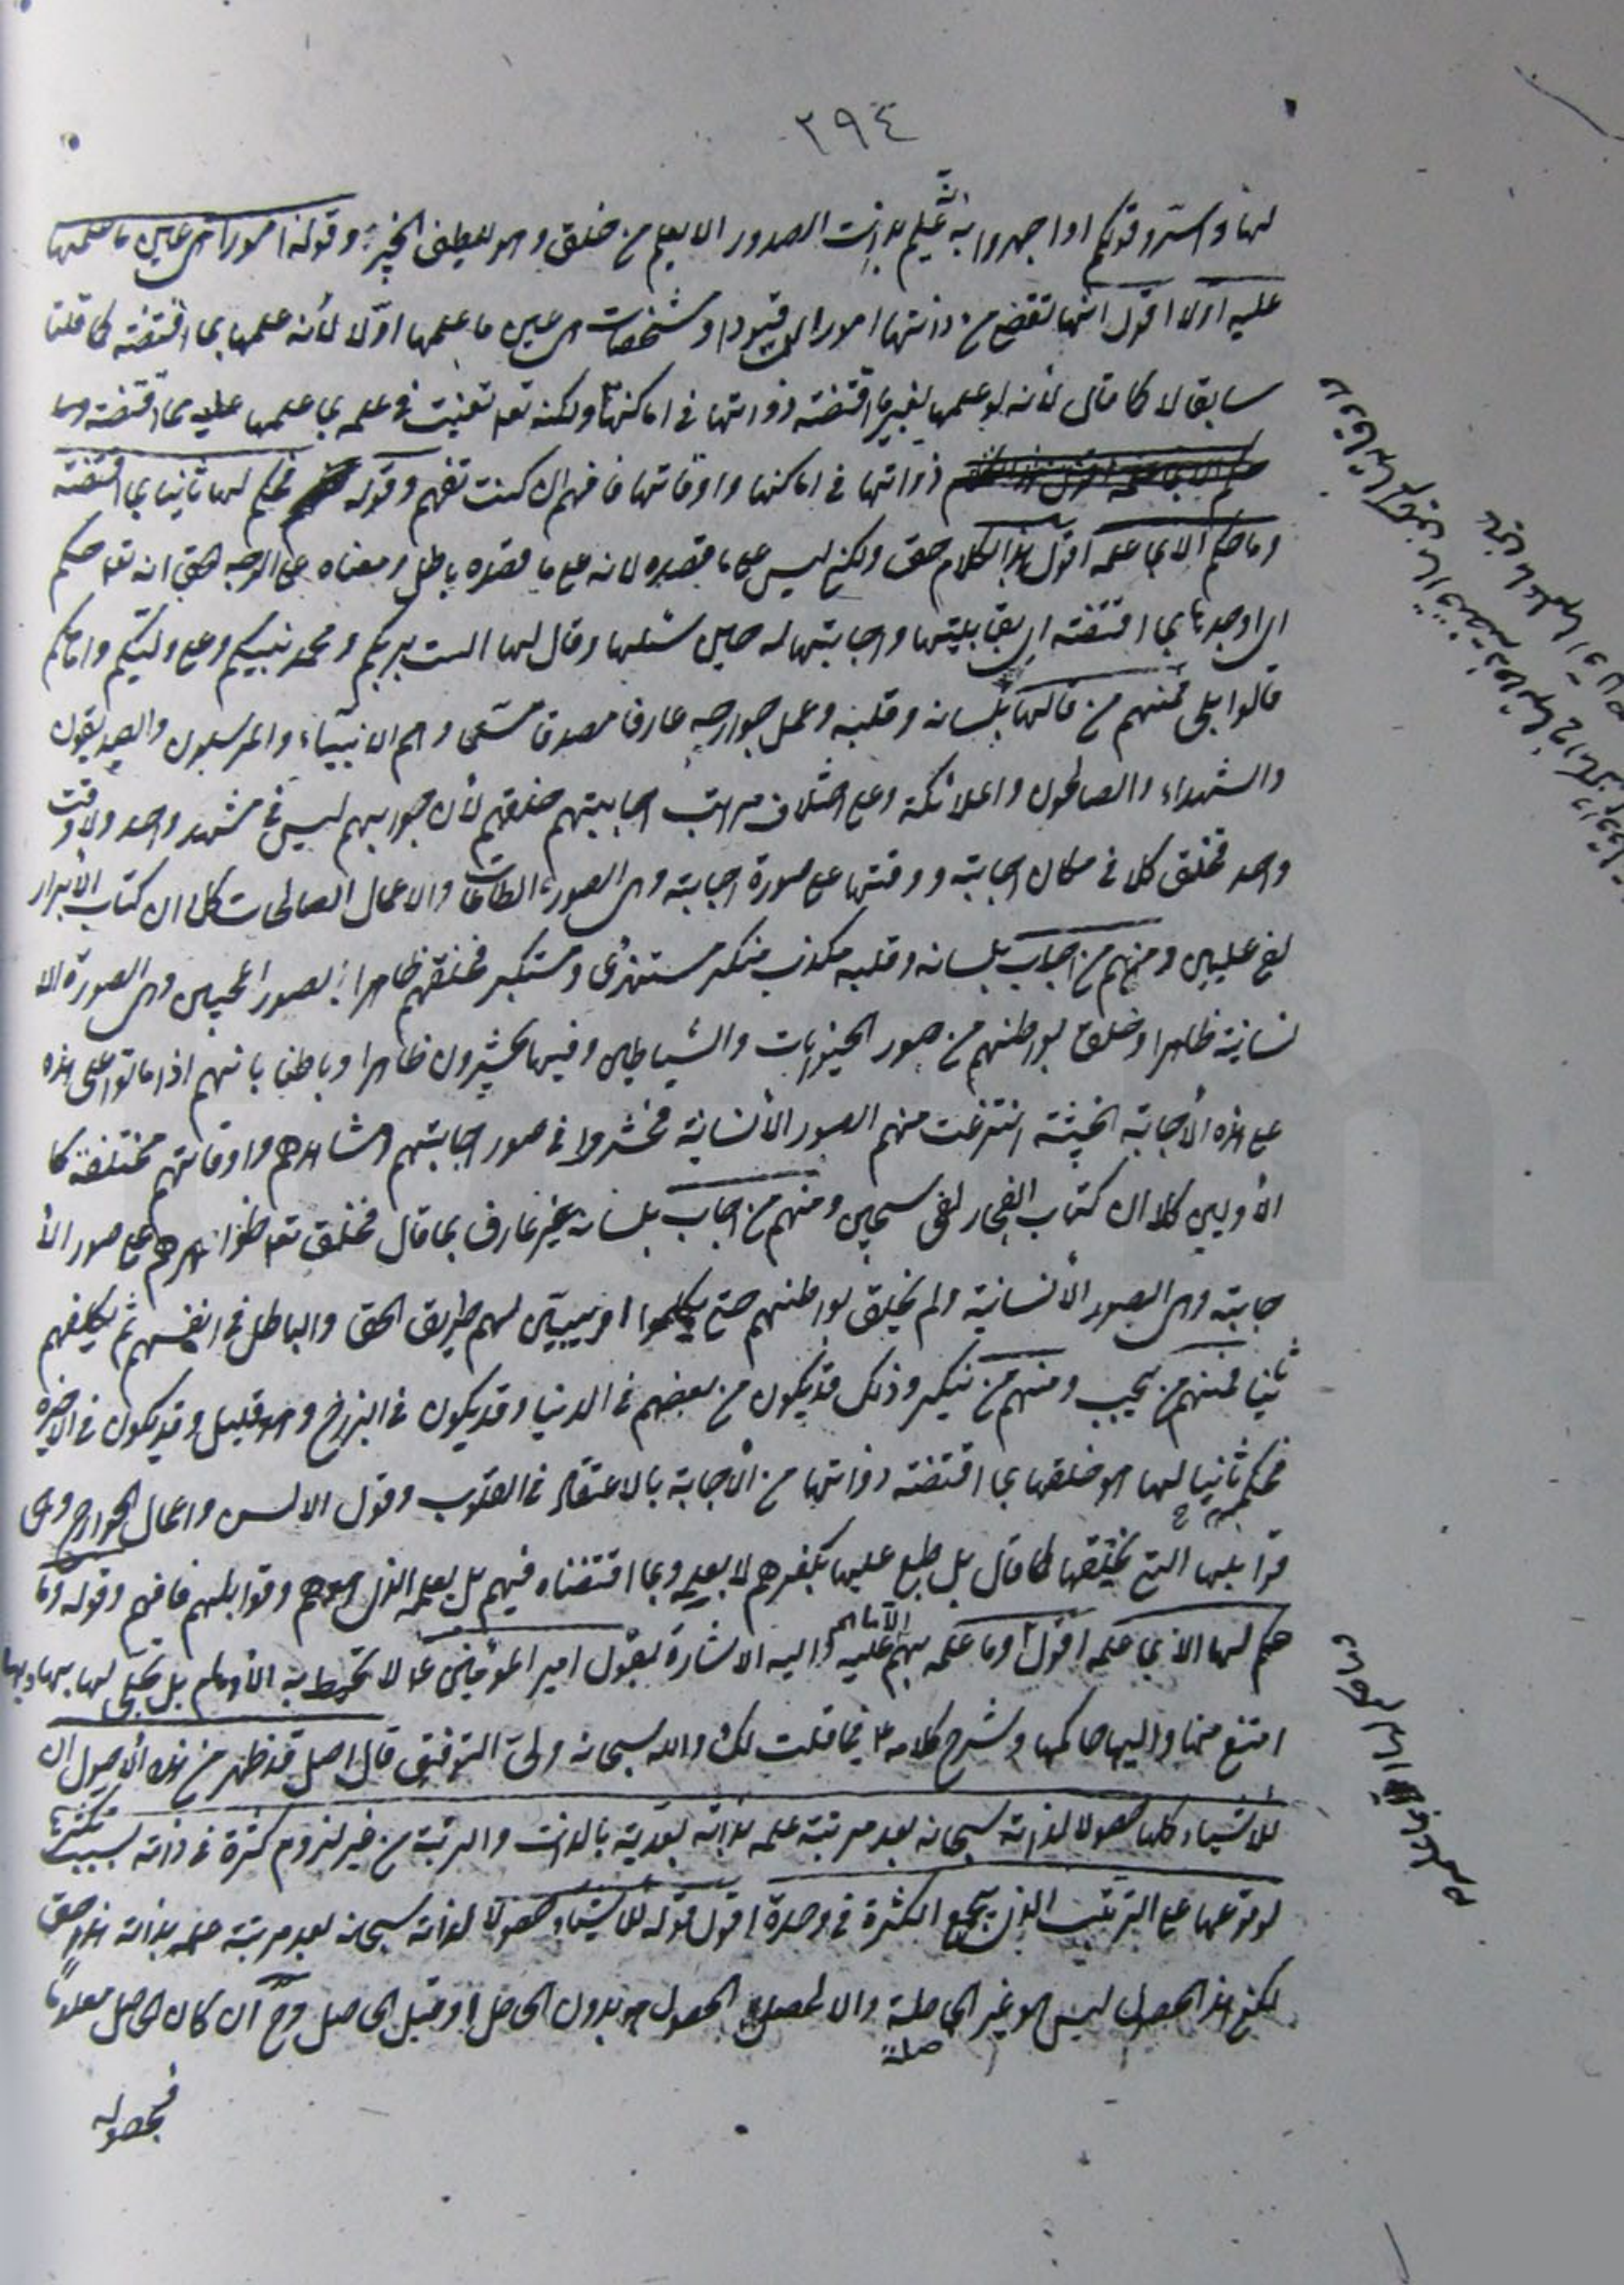 ٢٩٤
لها واسروا قولكم او اجهروا به انه عليم بذات الصدور الا يعلم من خلق وهو اللطيف الخبير وقوله امورا هي عين ما علمها
عليه اولا اقول انها تقتضي من ذاتها امورا اي قيودا ومشخصات هي عين ما علمها اولا لأنه علمها بما اقتضته كما قلنا
سابقا لا كما قال لأنه لو علمها بغير ما اقتضته ذواتها في اماكنها ولكنه تع تعينت في علمه بما علمها عليه مما اقتضته
ذواتها في اماكنها واوقاتها فافهم ان كنت تفهم وقوله فحكم لها ثانيا بما اقتضته
وما حكم الا بما علمه اقول هذا الكلام حق ولكن ليس على ما قصده لانه على ما قصده باطل ومعناه على الوجه الحق انه تع حكم
اي اوجد بما اقتضته اي بقابليتها واجابتها له حين سئلها وقال لها الست بربكم ومحمد نبيكم وعلي وليكم وامامكم
قالوا بلى فمنهم من قالها بلسانه وقلبه وعمل جوارحه عارفا مصدقا وهم الانبياء والمرسلون والصديقون
والشهداء والصالحون والملائكة وعلى اختلاف مراتب اجابتهم خلقهم لأن جوابهم ليس في مشهد واحد ولا وقت
واحد فخلق كلا في مكان اجابته ووقتها على صورة اجابته وهي الصور الطاعات والاعمال الصالحات كلا ان كتاب الأبرار
لفي عليين ومنهم من اجاب بلسانه وقلبه مكذب منكر مستهزئ ومستكبر فخلقهم ظاهرا بصور المجيبين وهي الصورة الا
نسانية ظاهرا وخلق بواطنهم من صور الحيوانات والشياطين وفيها يحشرون ظاهرا وباطنا بانهم اذا ماتوا على هذه
على هذه الأجابة الخبيثة انتزعت منهم الصور الأنسانية فحشروا في صور اجابتهم ومشاهدهم واوقاتهم مختلفة كا
الأولين كلا ان كتاب الفجار لفي سجين ومنهم من اجاب بلسانه غير عارف بما قال فخلق تع ظواهرهم على صور الأ
جابته وهي الصور الأنسانية ولم يخلق بواطنهم حتى يبين لهم طريق الحق والباطل في انفسهم ثم يكلفهم
ثانيا فمنهم من يجيب ومنهم من ينكر وذلك قد يكون من بعضهم في الدنيا وقد يكون في البرزخ وهو قليل وقد يكون في الاخرة
فحكمه ثانيا لها هو خلقها بما اقتضته ذواتها من الأجابة بالاعتقاد في القلوب وقول الالسن واعمال الجوارح وهي
قوابلها التي يخلقها كما قال بل طبع عليها بكفرهم لا بعلمه وبما اقتضاه فيهم بل بعلمه الذي وقوابلهم فافهم وقوله وما
حكم لها الا بما علمه اقول وما علمه عليه الا ما هم واليه الاشارة بقول امير المؤمنين ع لا تحيط به الأوهام بل تجلى لها بها وبها
امتنع منها واليها حاكمها وشرح كلامه ع فيما قلت لك والله سبحانه ولي التوفيق قال اصل قد ظهر من هذه الأصول ان
للأشياء كلها حصولا لذاته سبحانه بعد مرتبة علمه بذاته بعدية بالذات والرتبة من غير لزوم كثرة في ذاته بسبب تكثرها
لوقوعها على الترتيب الذي يجمع الكثرة في وحدة اقول قوله للأشياء حصولا لذاته سبحانه بعد مرتبة علمه بذاته هذا حق
لكن هذا الحصول ليس هو غير الحاصلة والا لحصل الحصول بدون الحاصل او قبل الحاصل وح ان كان الحاصل معلوما
فحصوله